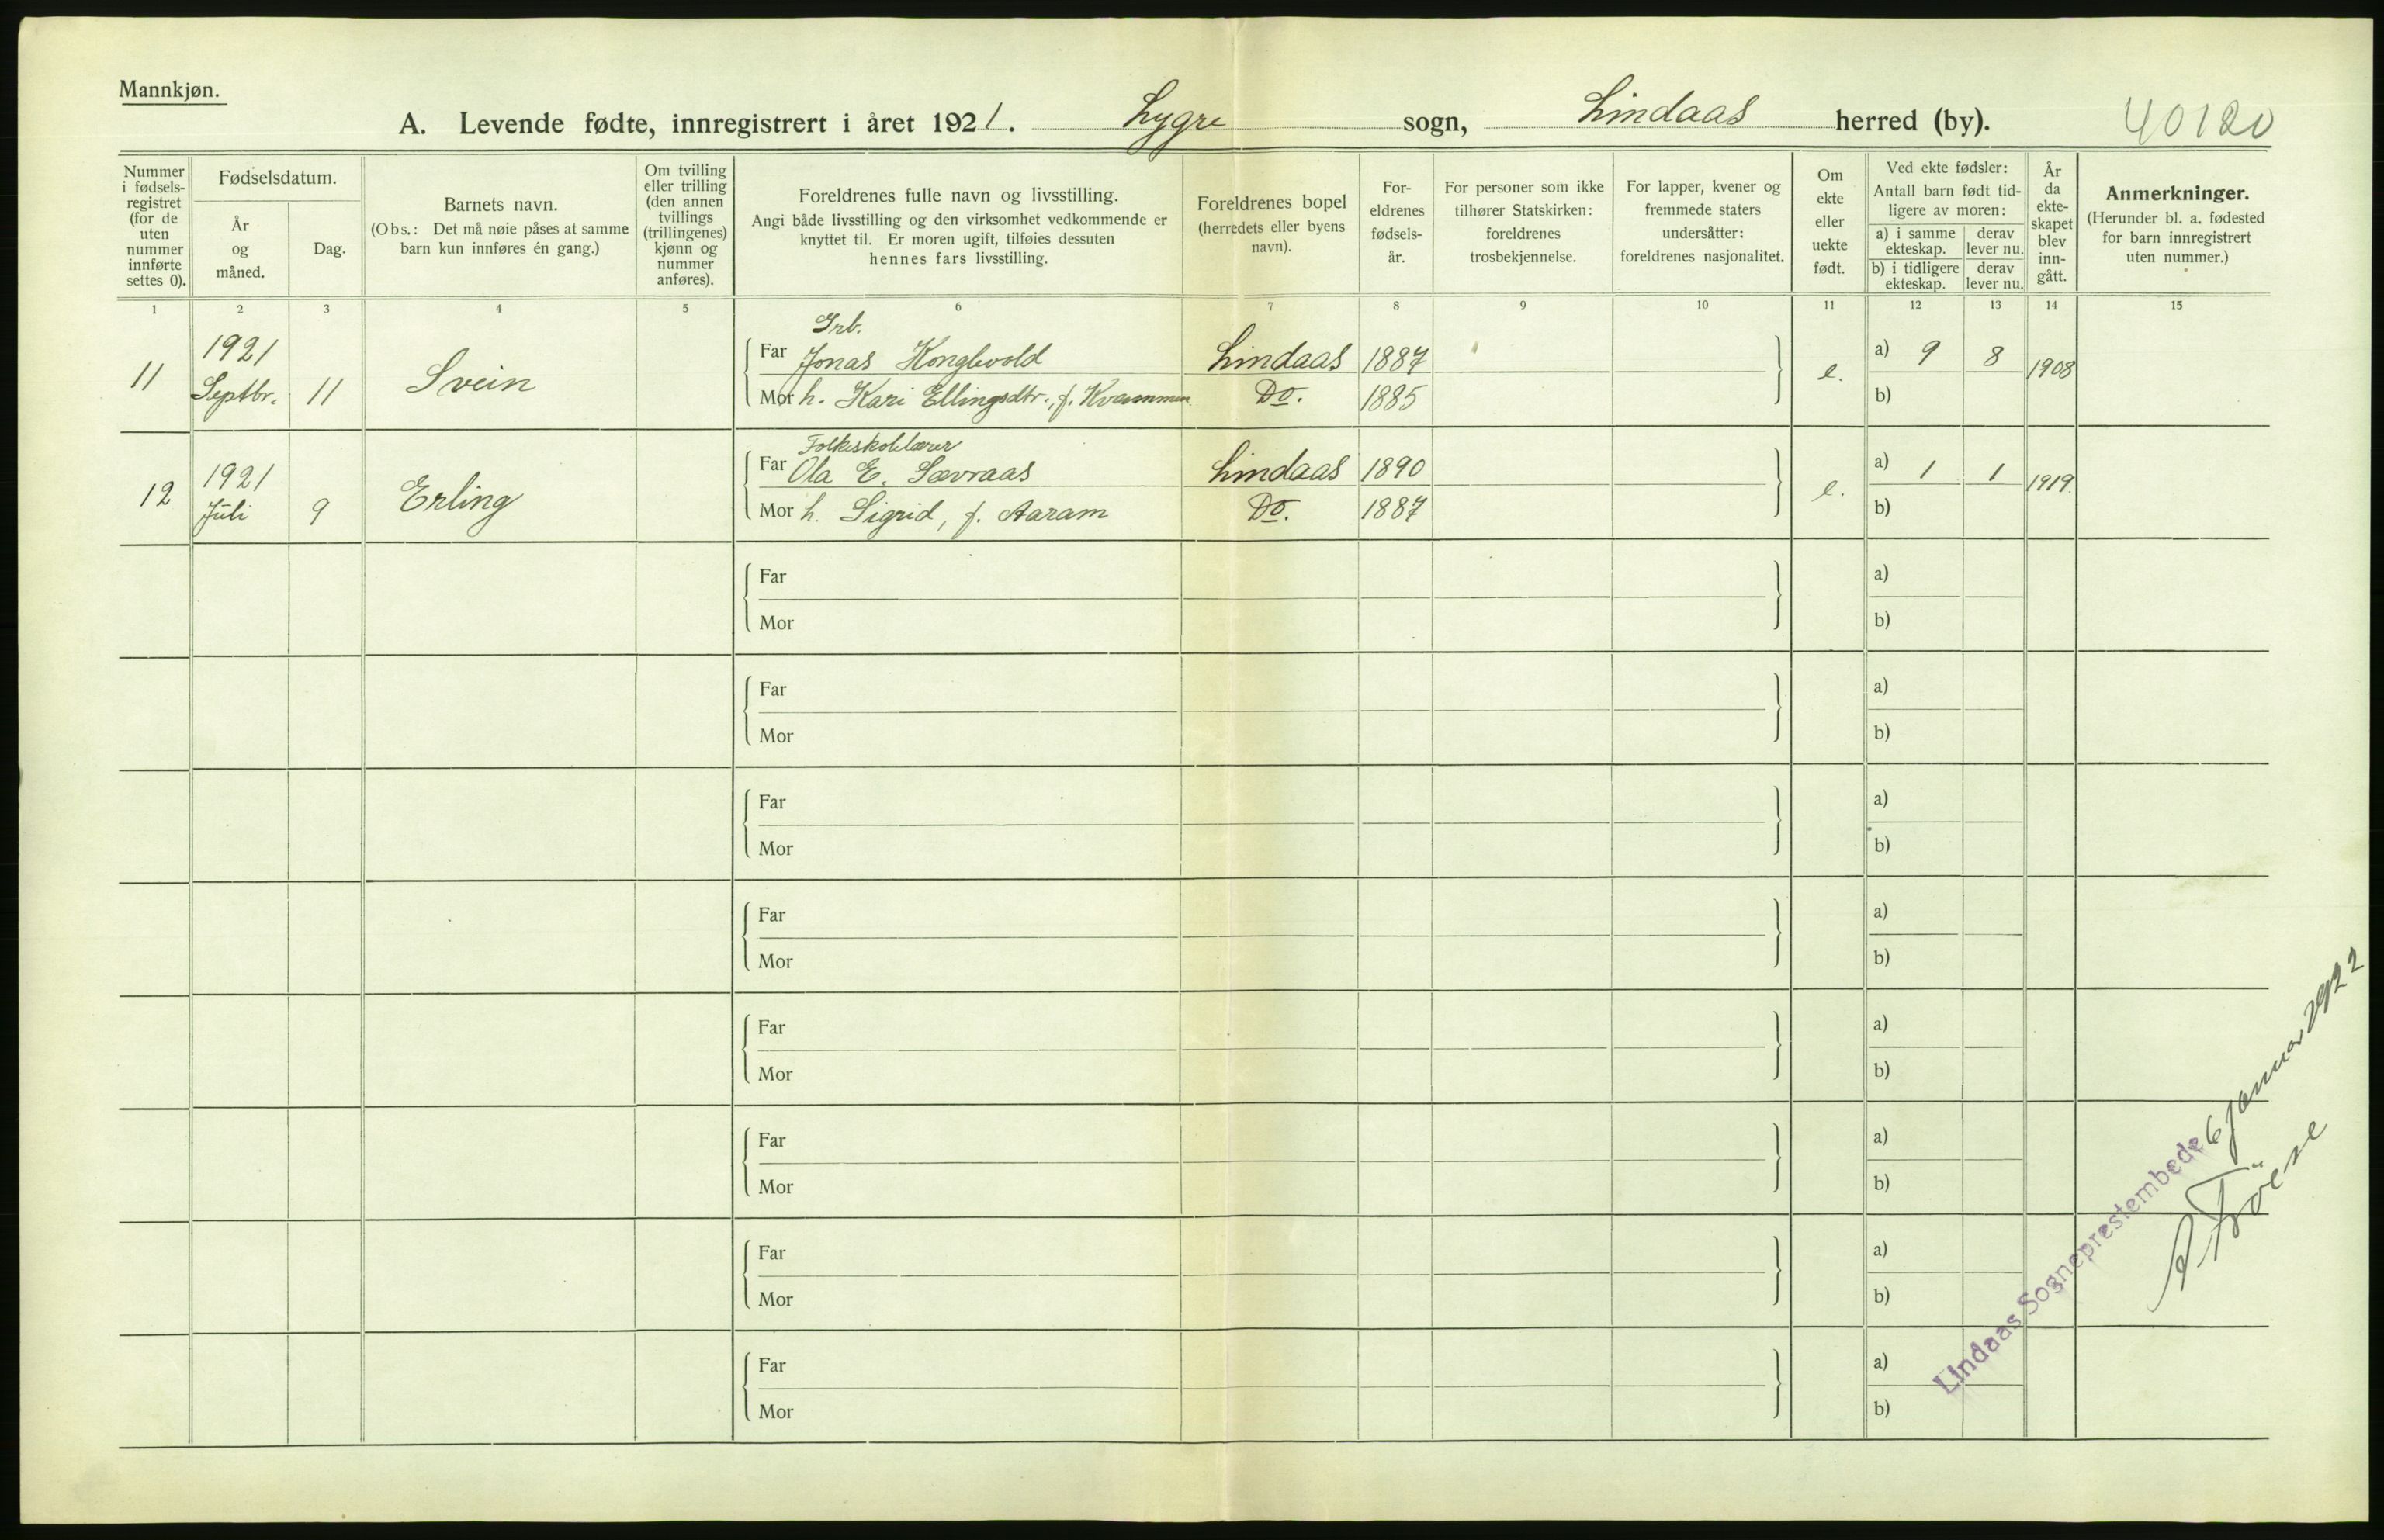 Mannkjøn.
A. Levende fødte, innregistrert i året 1921. Lygre sogn, Lindaas herred (by). 40120
Nummer i fødsels-registret (for de uten nummer innførte settes 0).
Fødselsdatum.
År og måned.
Dag.
Barnets navn.
(Obs.: Det må nøie påses at samme barn kun innføres én gang.)
Om tvilling eller trilling (den annen tvillings (trillingenes) kjønn og nummer anføres).
Foreldrenes fulle navn og livsstilling.
Angi både livsstilling og den virksomhet vedkommende er knyttet til. Er moren ugift, tilføies dessuten hennes fars livsstilling.
Foreldrenes bopel (herredets eller byens navn).
For-eldrenes fødsels-år.
For personer som ikke tilhører Statskirken: foreldrenes trosbekjennelse.
For lapper, kvener og fremmede staters undersåtter: foreldrenes nasjonalitet.
Om ekte eller uekte født.
Ved ekte fødsler:
Antall barn født tid-ligere av moren:
a) i samme ekteskap.
derav lever nu.
b) i tidligere ekteskap.
derav lever nu.
År da ekte-skapet blev inn-gått.
Anmerkninger.
(Herunder bl. a. fødested for barn innregistrert uten nummer.)
1 2 3 4 5 6 7 8 9 10 11 12 13 14 15
Grb.
11 1921 Septbr. 11 Svein
Far Jonas Konglevold Lindaas 1887 e. a) 9 8 1908
Mor h. Kari Ellingsdtr., f. Kvammen Do. 1885 b)
Folkeskolelærer
12 1921 Juli 9 Erling
Far Ola E. Sævraas Lindaas 1890 e. a) 1 1 1919.
Mor h. Sigrid, f. Aaram Do. 1887 b)
Far a)
Mor b)
Far a)
Mor b)
Far a)
Mor b)
Far a)
Mor b)
Far a)
Mor b)
Far a)
Mor b)
Far a)
Mor b)
Far a)
Mor b)
Lindaas Sogneprestembede 6 januar 1922